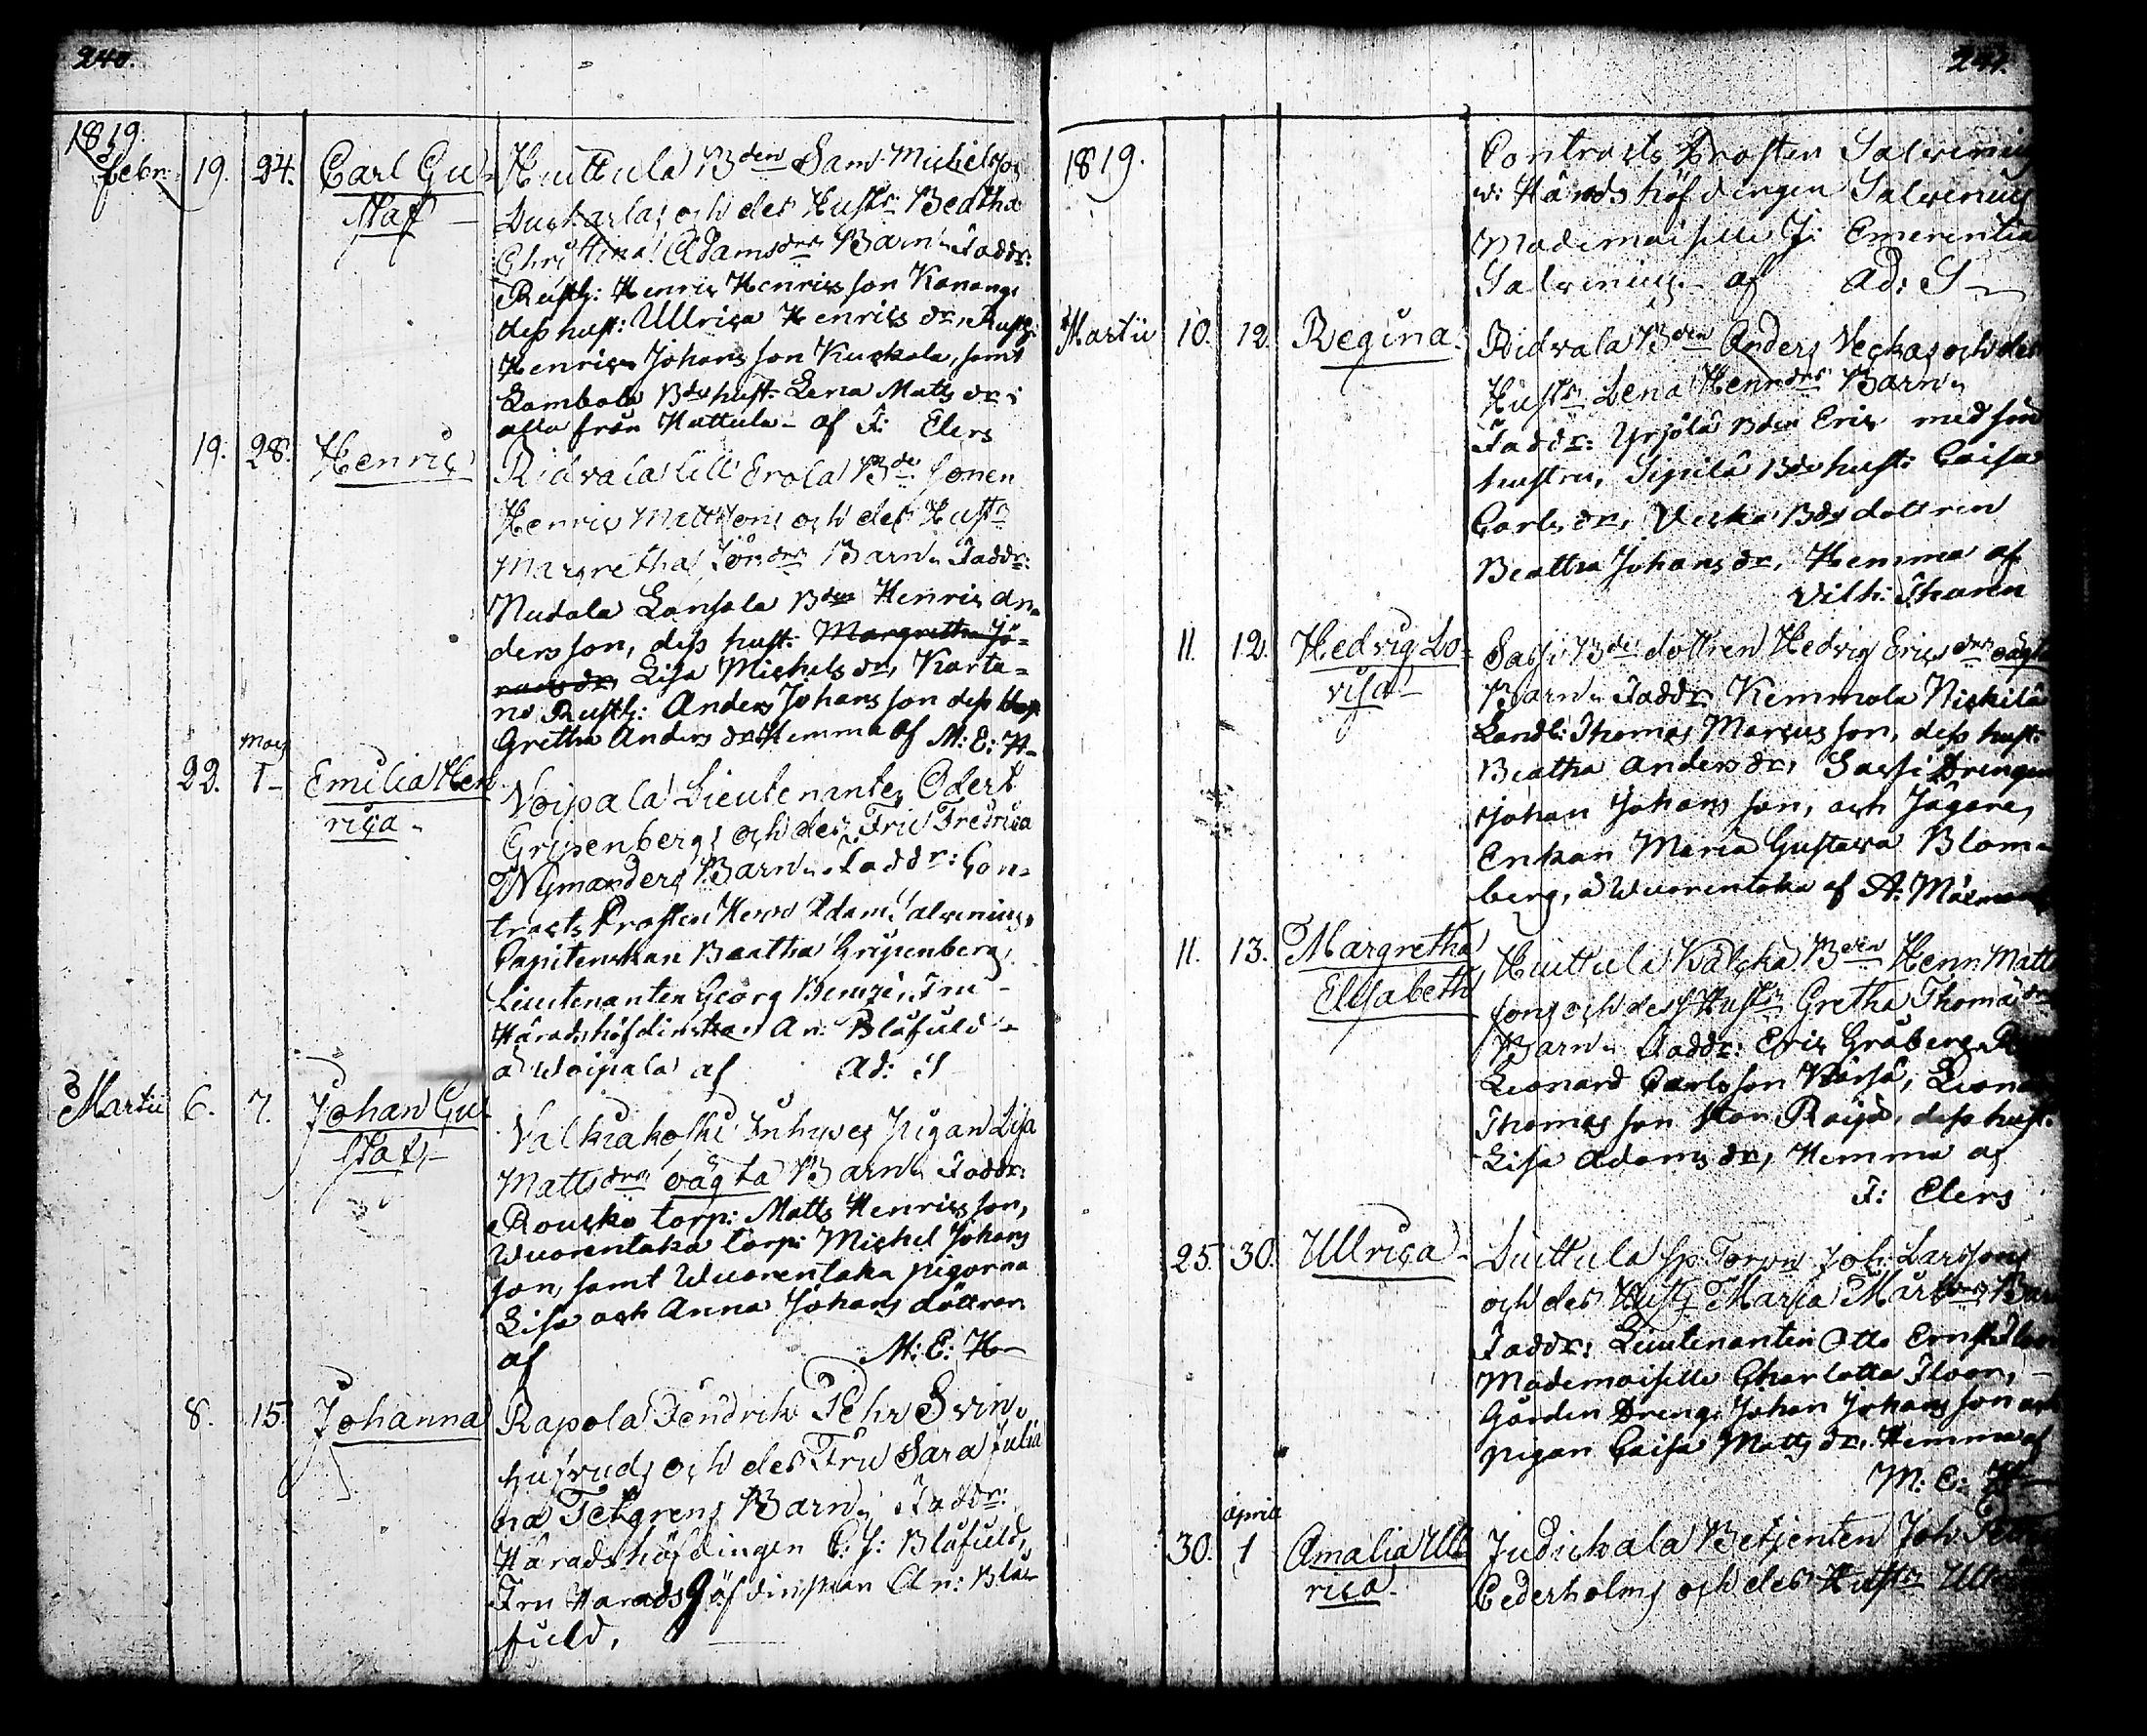 240.
1819.
Febr: 19. 24. Carl Gu-
staf
Huittula Bden Sam Michelsson
Duskarlas och des Hustr: Beatha
Christina Adamsdrs Barn. Faddr:
Rusth: Henric Henricsson Konong,
dess hust: Ullrica Henrics dr, Rusth:
Henric Johans son Kuckola, samt
Lambola Bds hust: Lena Matts dr
alla från Hattula - af F: Elers
19. 28. Henric
Ridvala lill Erola Bde sonen
Henric Mattsons och des Hustr
Margretha Jöransdr Barn. Faddr:
Nudala Lansola Bden Henric An-
dersson, dess hust: Margretha Jö-
rans dr, Lisa Michels dr, Karta-
no Rusth: Anders Johansson dess hust
Gretha Anders dr. Hemma af M: E: H-
22. Marz 1 - Emilia Hen
rica -
Voipala Lieutenanten Odert
Gripenbergs och des Fru Fredrica
Nymanders Barn. Faddr: Con-
tracts Prosten Herr Adam Salvenius,
Capitenskan Beatha Gripenberg,
Lieutenanten Georg , Fru -
Häradshöfdinskan An: Blåfield -
å Woipala af Ad: S
Martii 6. 7. Johan Gu
staf, -
Valkiakoski Inhyses Pigan Lisa
Mattsdrs oägta Barn. Faddr:
Roucko torp: Matts Henricsson,
Wuorentaka torp: Michel Johans
son, samt Wuorentaka pigorna
Lisa och Anna Johans döttrar
af M: E: H-
8. 15. Johanna
Rapola Fendrik Pehr Svin-
hufvuds och des Fru Sara Julia
na Tetgrens Barn. Faddr:
Häradshöfdingen C: J: Blåfield,
Fru Haradshöfdinskan An: Blå-
field,
241.
1819.
Contracts Prosten Salvenius
v: Häradshöfdingen Salvenius
Mademoiselle J: Emerentia
Salvenius. - af Ad: S -
Martii 10. 12. Regina.
Ridvala Bden Anders Veckas och des
Hustr: Lena Henrdrs Barn.
Faddr: Yrjölä Bden Eric med sin
hustru, Sipilä Bds hust: Caisa
Carls dr, Veckas Bds dottren
Beatha Johans dr, Hemma af
Vilh: Thauen
11. 12. Hedvig Lo-
visa -
Sassi Bde dottren Hedvig Ericsdrs oägta
Barn. Faddr: Kemmola Nickilä
Landb: Thomas Marcus son, dess hust:
Beatha Anders dr, Sassi Drengen
Johan Johans son, och Jägare,
Enkan Maria Gustava Blom-
berg, å Wuorentaka af A: Malmberg
11. 13. Margretha
Elisabeth
Huittula Kälcka Bden Henr: Matts
sons och dess Hustr: Gretha Thomædrs
Barn. Faddr: Eric Gråberg,
Leonard Carlsson , Leonard
Thomas son stor Roipo, dess hust:
Lisa Adams dr, Hemma af
F: Elers
25. 30. Ullrica -
Luittula Sp Torpn Joh: Larssons
och des Hustr: Maria Mårtsdrs Barn
Faddr: Lieutenanten Otto Ernst Floor
Mademoiselle Charlotta Floor, -
Gården Dreng: Johan Johansson och
pigan Caisa Matts dr. Hemma af
M: E: H-
30. April 1 Amalia Ull
rica -
Judickala Betjenten Joh
Cederholms och des Hustr Ullrica